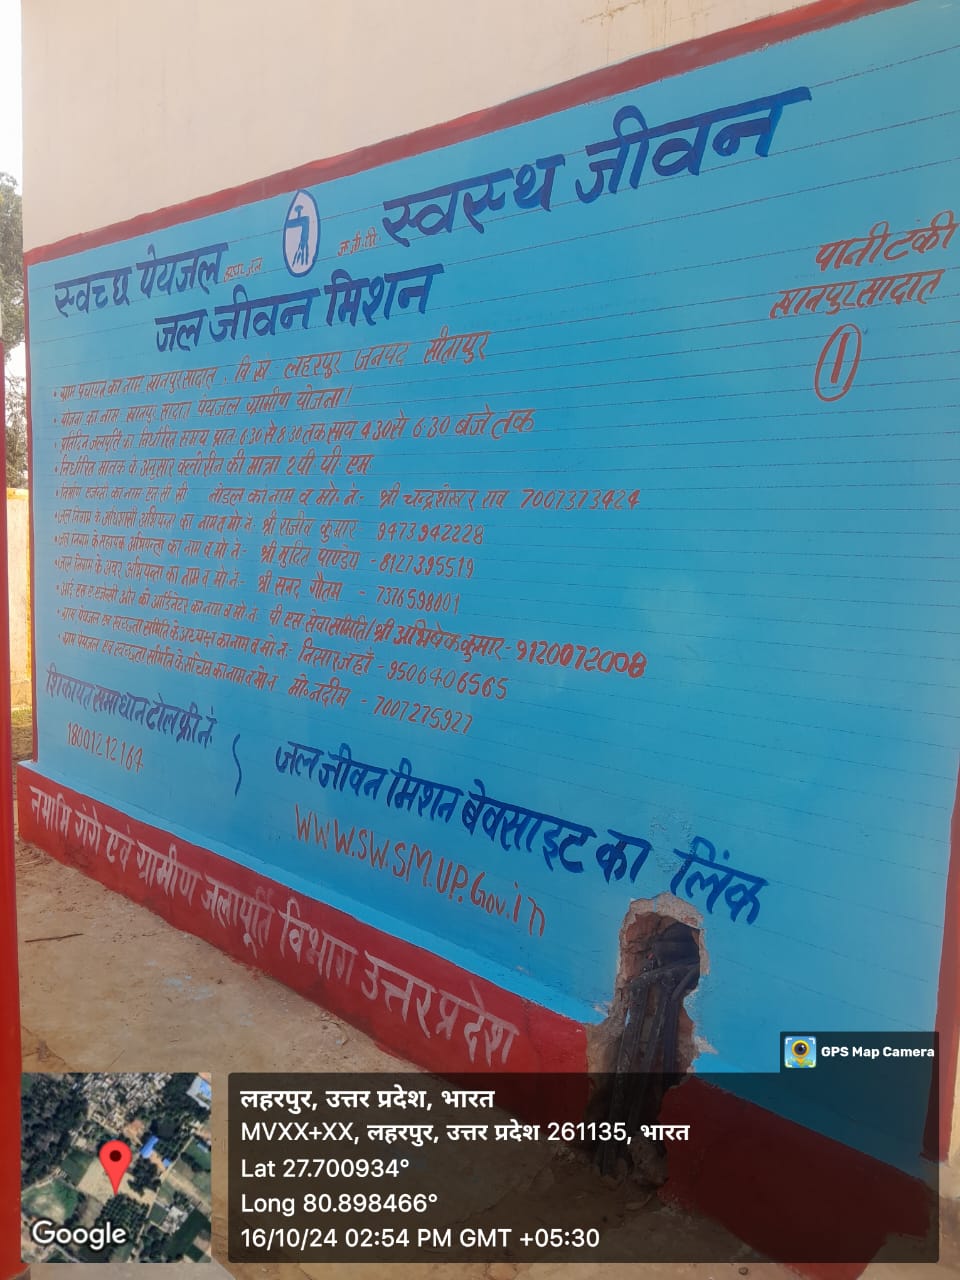 स्वच्छ पेयजल स्वस्थ जीवन
जल जीवन मिशन
पानी टंकी
खानपुर सादात
1
• ग्राम पंचायत का नाम खानपुर सादात, वि ख लहरपुर जनपद सीतापुर
• योजना का नाम खानपुर सादात पेयजल ग्रामीण योजना।
• प्रतिदिन जलपूर्ति का निर्धारित समय प्रातः 6:30 से 8:30 तक सायं 4:30 से 6:30 बजे तक
• निर्धारित मानक के अनुसार क्लोरीन की मात्रा 2 पी पी एम
• निर्माण एजेन्सी का नाम एन सी सी नोडल का नाम व मो० नं- श्री चन्द्रशेखर राव 7007373424
• जल निगम के अधिशासी अभियन्ता का नाम व मो नं: श्री राजीव कुमार 9473942228
• जल निगम के सहायक अभियन्ता का नाम व मो नं:- श्री मुदित पाण्डेय -8127395519
• जल निगम के अवर अभियन्ता का नाम व मो नं- श्री सनद गौतम - 7376598001
• आई एस ए एजेन्सी और को आर्डिनेटर का नाम व मो नं: पी एस सेवा समिति/श्री अभिषेक कुमार-9120072008
• ग्राम पेयजल एवं स्वच्छता समिति के अध्यक्ष का नाम व मो नं: निसार जहाँ - 9506406565
• ग्राम पेयजल एवं स्वच्छता समिति के सचिव का नाम व मो नं मो० नदीम - 7007275927
शिकायत समाधान टोल फ्री नं:
18001212164
जल जीवन मिशन बेवसाइट का लिंक
WWW.SWSM.UP.Gov.in
नमामि गंगे एवं ग्रामीण जलापूर्ति विभाग उत्तर प्रदेश
GPS Map Camera
लहरपुर, उत्तर प्रदेश, भारत
MVXX+XX, लहरपुर, उत्तर प्रदेश 261135, भारत
Lat 27.700934°
Long 80.898466°
16/10/24 02:54 PM GMT +05:30
Google